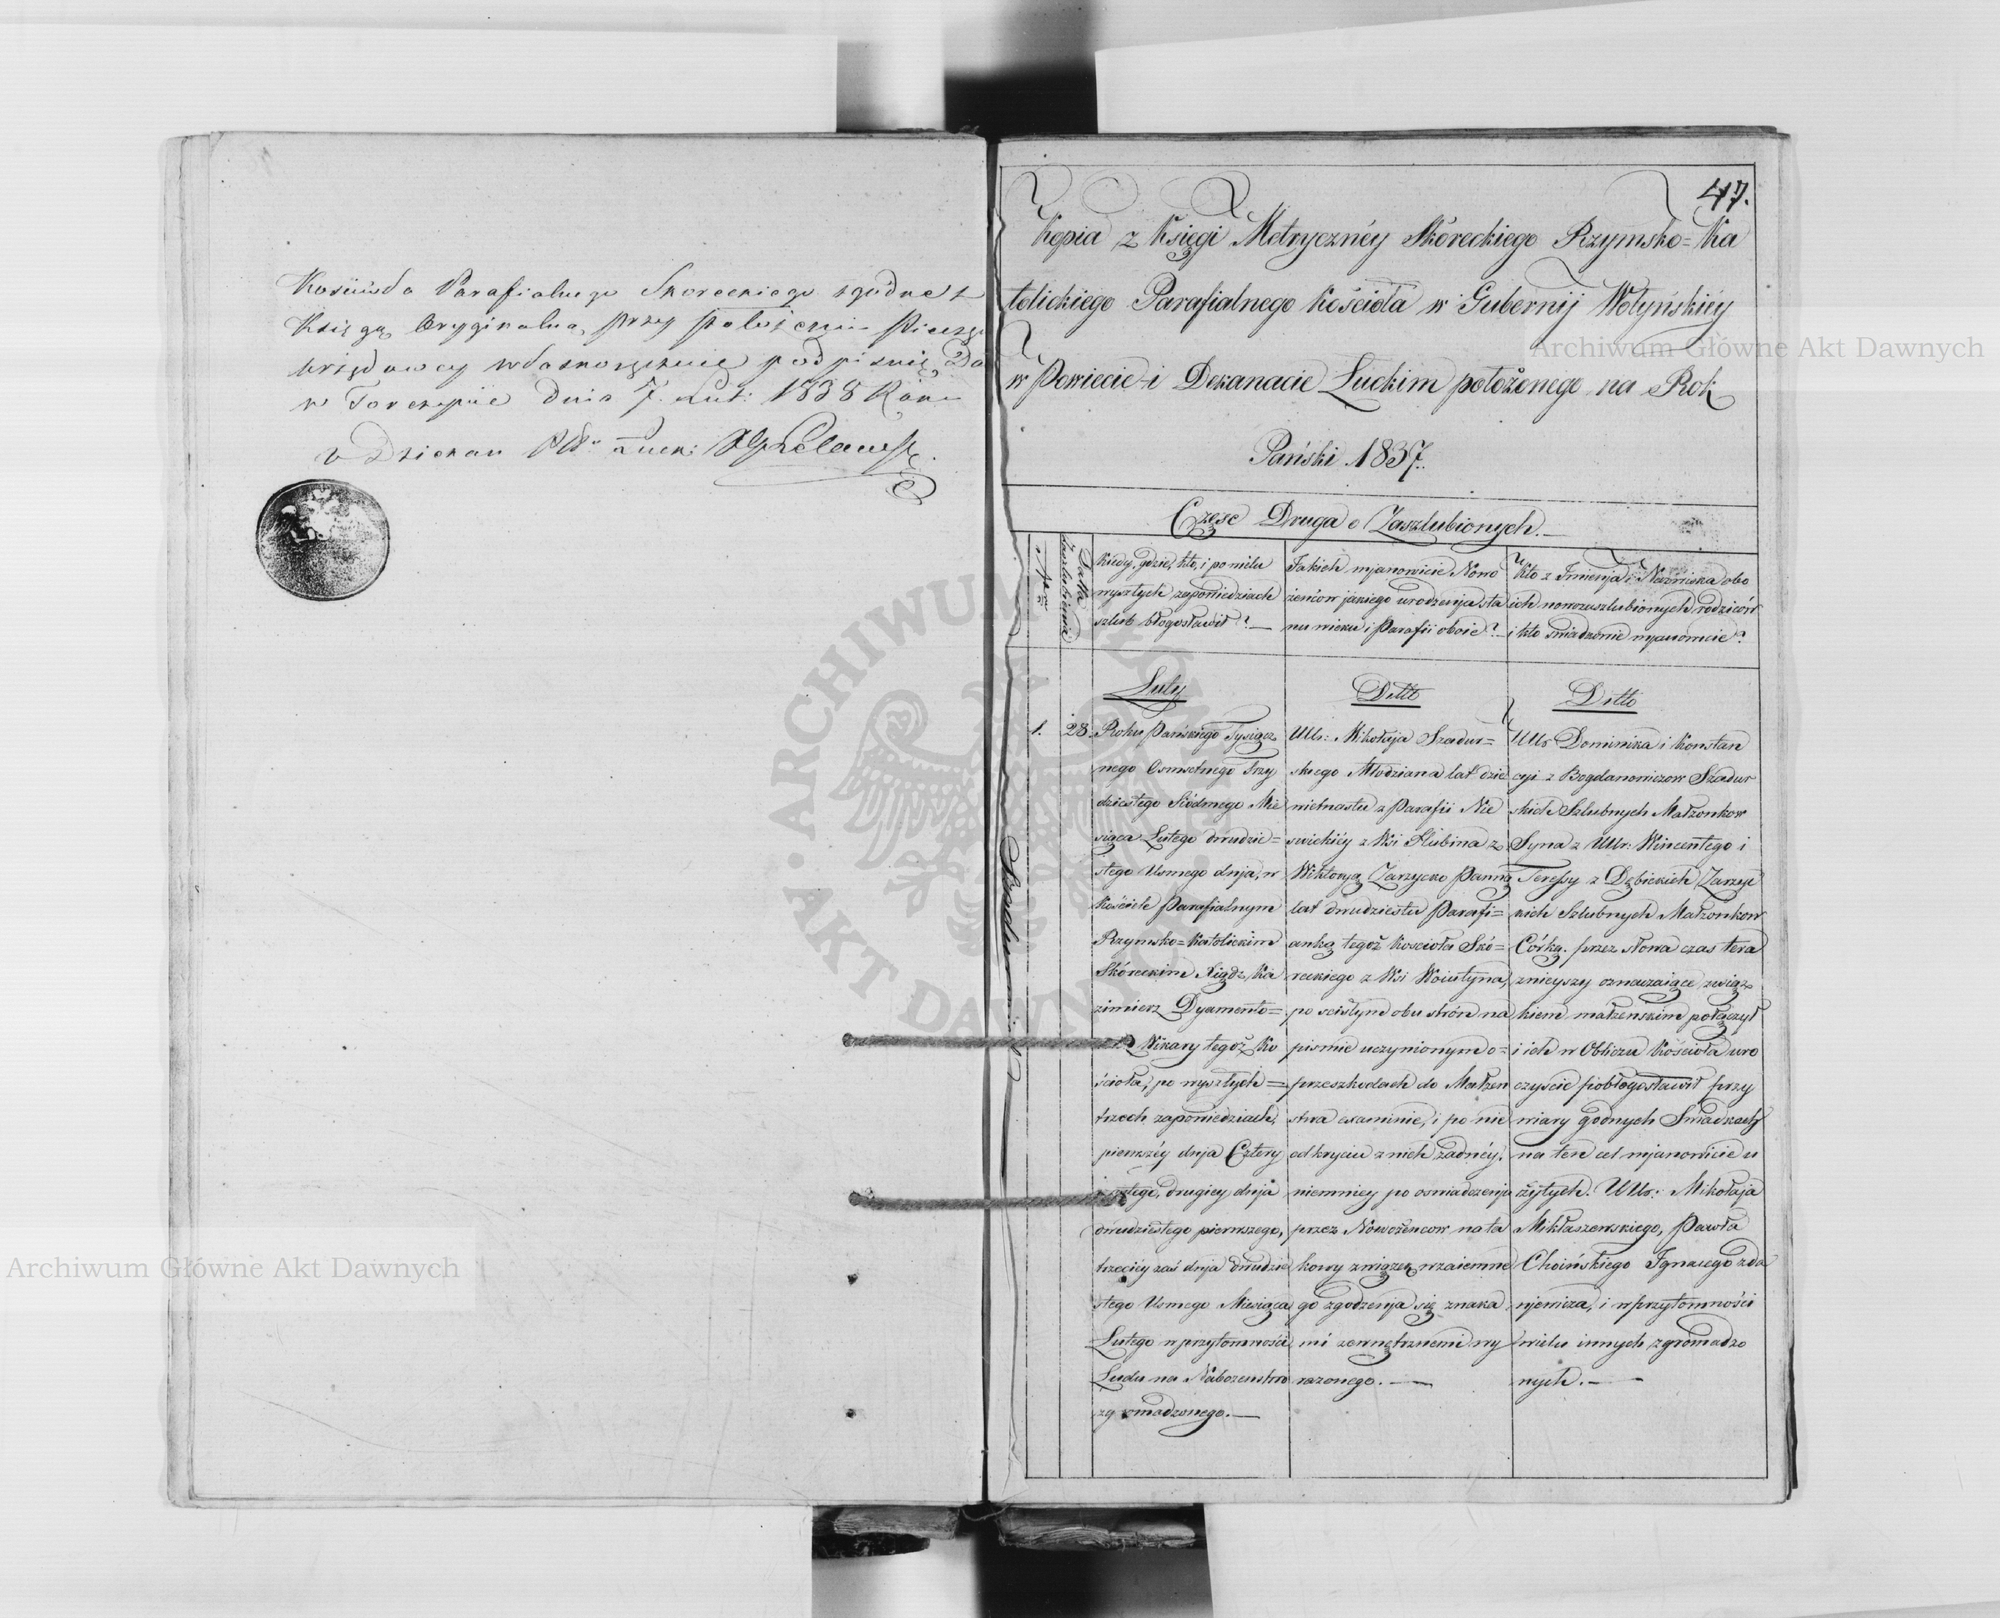 Kościoła Parafialnego Skoreckiego zgodne z
Księgą Oryginalną przy położeniu Pieczęci
urzędowey własnoręcznie podpisuię. Da
w Torczynie dnia 7. 1838 Roku
v Dziekan Łuck:
47.
Kopia z Księgi Metrycznéy Skóreckiego Rzymsko=Ka
tolickiego Parafialnego Kościoła w Gubernij Wołyńskiéy
w Powiecie i Dekanacie Łuckim położonego na Rok
Pański 1837.
Częsc Druga o Zaszlubionych.
Datta
Zaszlubienia
Kiedy, gdzie, kto, i po wielu
wyszłych zapowiedziach
szlub błogosławił?
Jakich mjanowicie Nowo
żeńcow jakiego urodzenja sta
nu wieku i Parafii oboie?
Kto z Jmienja i Nazwiska obo
ich nowozaszlubionych rodziców
i kto swiadkowie mjanowicie?
Luty
Ditto
Ditto
1.
28.
Roku Pańskiego Tysiącz
nego Osmsetnego Trzy
dziestego Siódmego Mie
siąca Lutego dwudzie=
stego Usmego dnja, w
Kościele Parafialnym
Rzymsko=Katolickim
Skóreckim Xiądz Ka
zimierz Dyamento=
Wikary tegoż Ko
ścioła, po wyszłych
trzech zapowiedziach,
pierwszéy dnja Cztery
drugiey dnja
dwudziestego pierwszego,
trzeciey zaś dnja dwudzie
stego Usmego Miesiąca
Lutego w przytomności
Ludu na Nabożenstwo
zgromadzonego.
Ur: Mikołaja Szadur=
skiego Młodziana lat dzie
więtnastu z Parafii Nie
swickiéy z Wsi Hubina z
Wiktoryą Zarzycko Panną
lat dwudziestu Parafi=
anką tegoż Kosciola Skó=
reckiego z Wsi Woiutyna,
po scisłym obu strón na
pismie uczynionym o=
przeszkodach do Małżen
stwa examinie, i po nie
odkryciu z nich żadnéy,
niemniey po oswiadczenju
przez Nowożencow na ta
kowy związek wzaiemne
go zgodzenja się znaka
mi zewnętrznemi wy
razonego.
Ur: Dominika i Konstan
cyi z Bogdanowiczow Szadur
skich Szlubnych Małżonkow
Syna z Ur: Wincentego i
Teressy z Dębickich Zarzyc
kich Szlubnych Małżonkow
Córką. przez słowa czas tera
znieyszy oznaczaiące, związ
kiem małżenskim połączył
i ich w Obliczu Kościoła uro
czyscie pobłogosławił przy
wiary godnych Swiadkach
na ten cel mjanowicie u
żytych. Ur: Mikołaja
Mikłaszewskiego, Pawła
Choińskiego Jgnacego zda
njewicza, i w przytomności
wielu innych zgromadzo
nych.